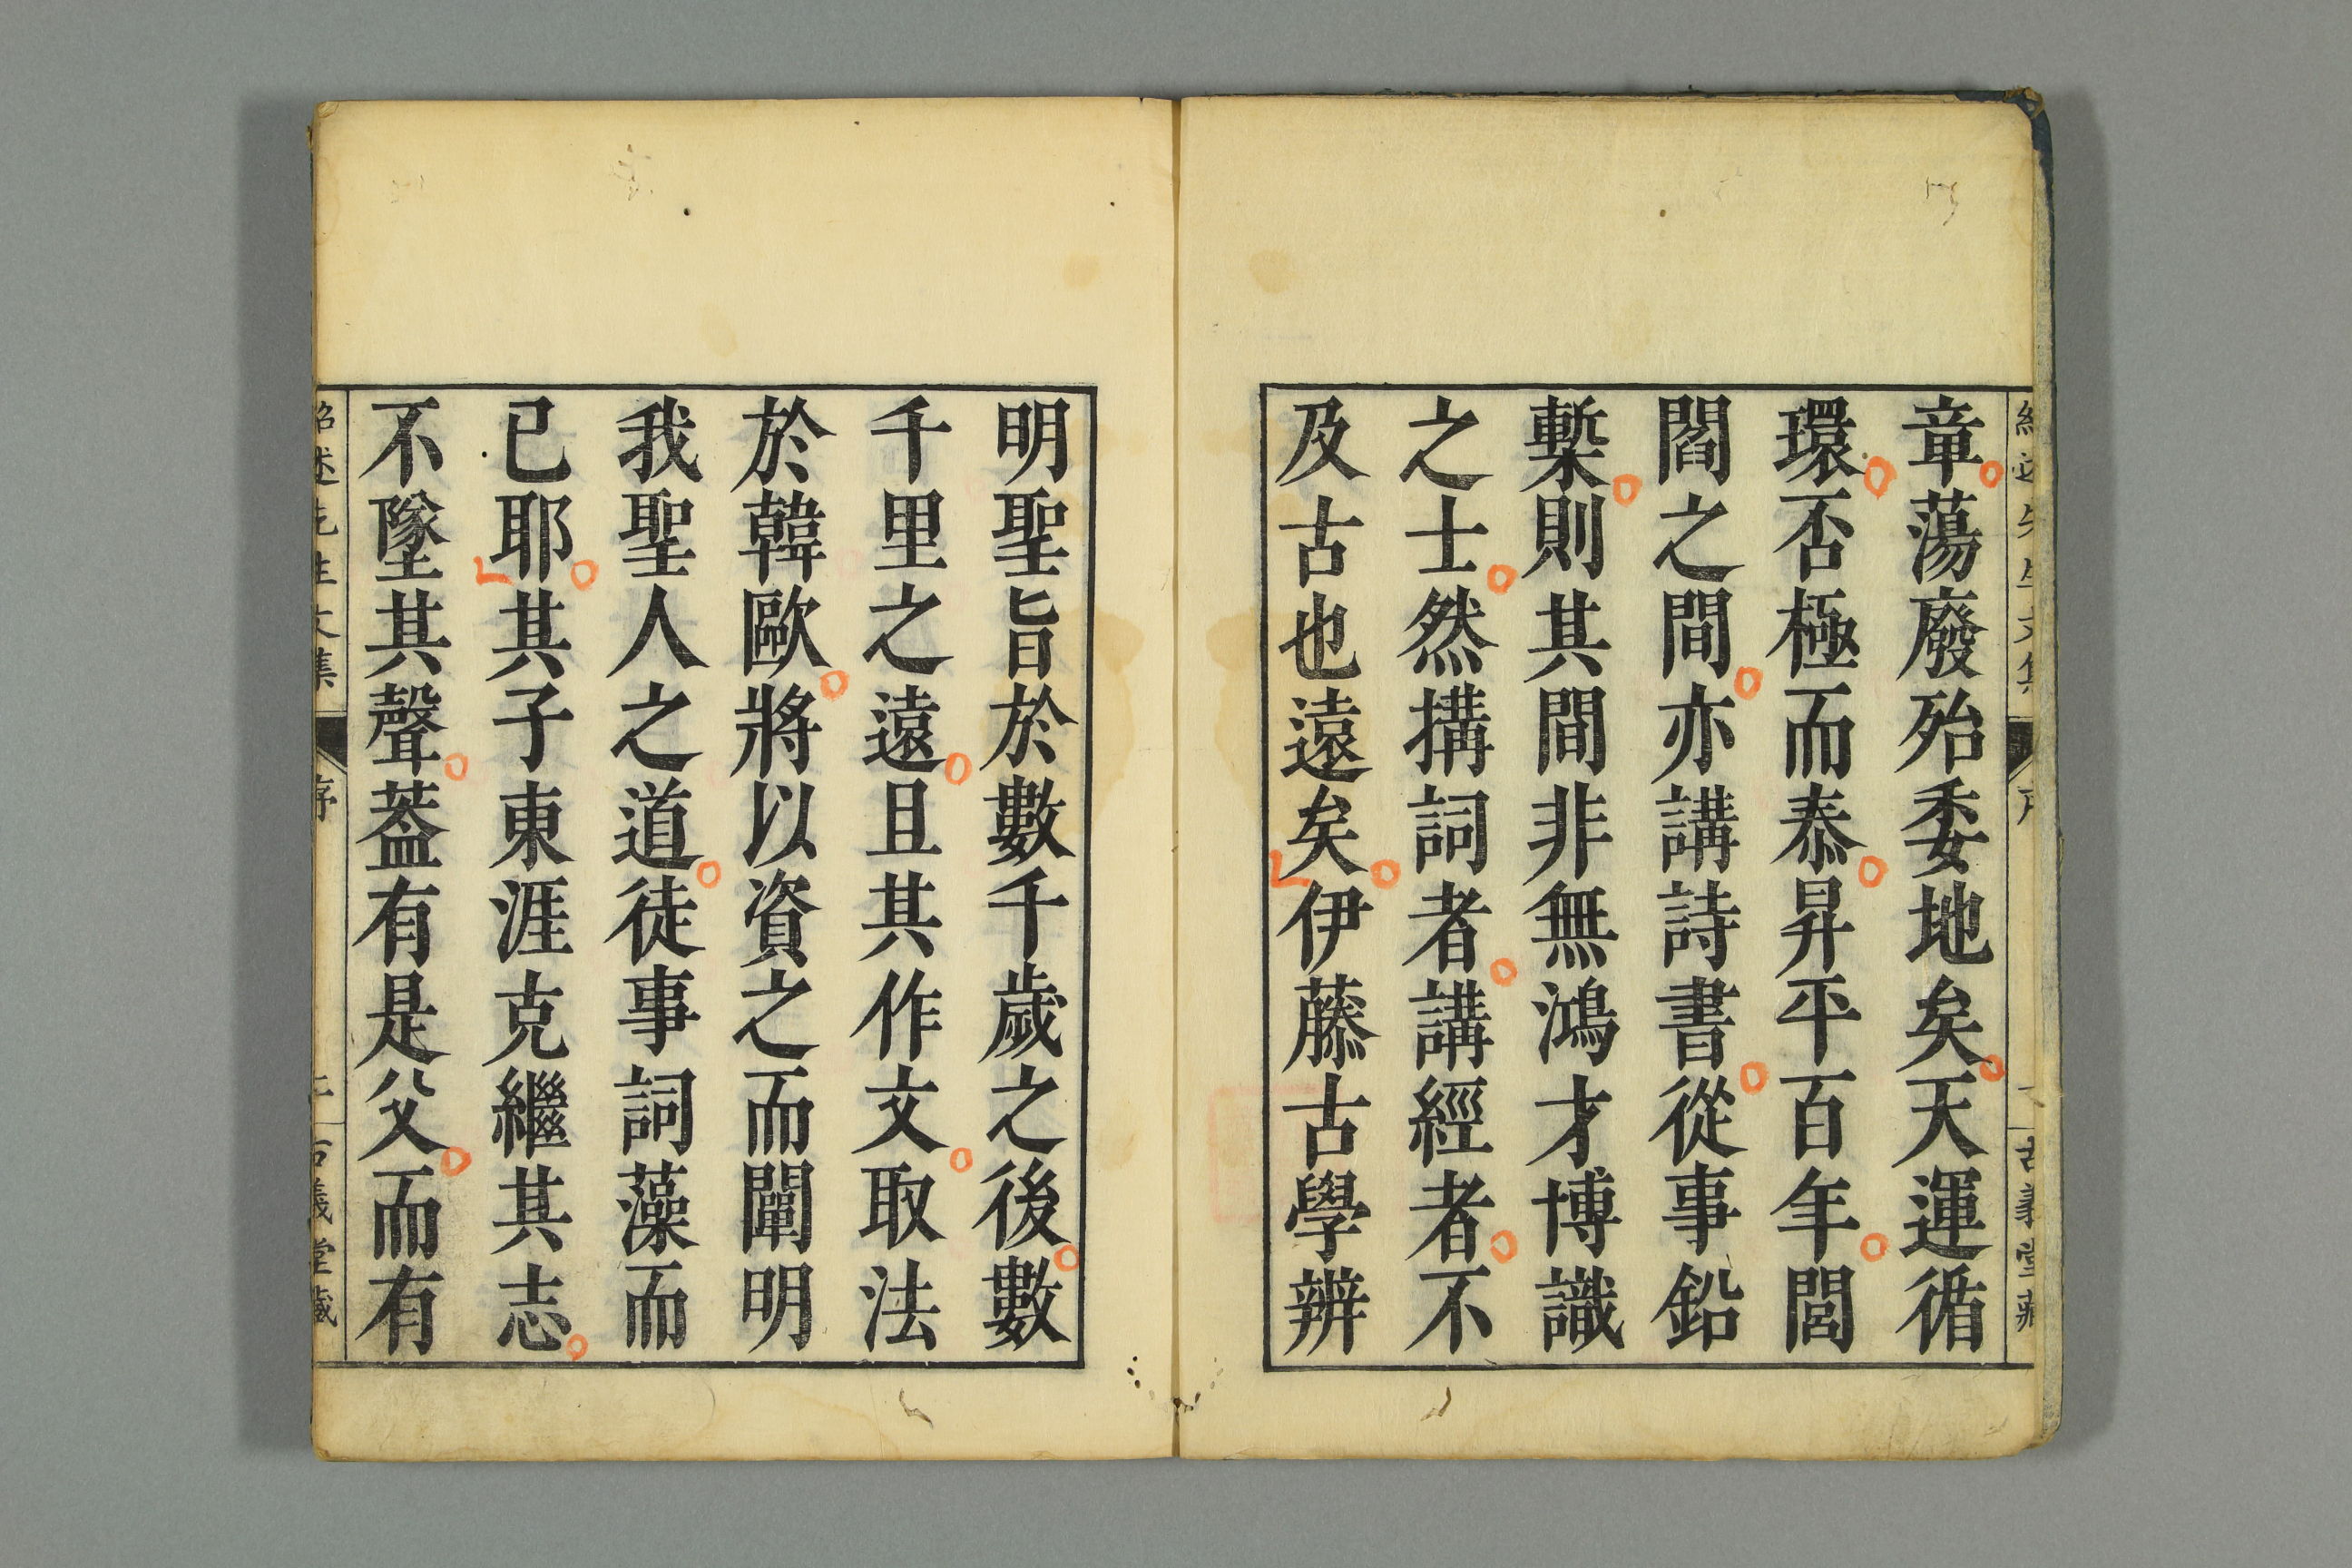 章蕩廢殆委地矣天運循
環否極而泰昇平百年閭
閻之間亦講詩書從事鉛
槧則其間非無鴻才博識
之士然搆詞者講經者不
及古也遠矣伊藤古學辨
明聖旨於數千歲之後數
千里之遠且其作文取法
於韓歐將以資之而闡明
我聖人之道徒事詞藻而
已耶其子東涯克繼其志
不墜其聲葢有是父而有
紹述先生文集
序
古義堂藏